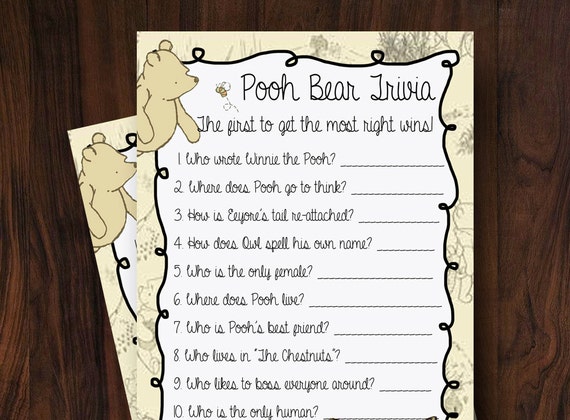 Pooh Bear Trivia
The first to get the most right wins!
1 Who wrote Winnie the Pooh? ____________
2. Where does Pooh go to think? ____________
3. How is Eeyore's tail re-attached? ____________
4. How does Owl spell his own name? ____________
5 Who is the only female? ____________
6. Where does Pooh live? ____________
7. Who is Pooh's best friend? ____________
8 Who lives in "The Chestnuts"? ____________
9. Who likes to boss everyone around? ____________
10. Who is the only human? ____________